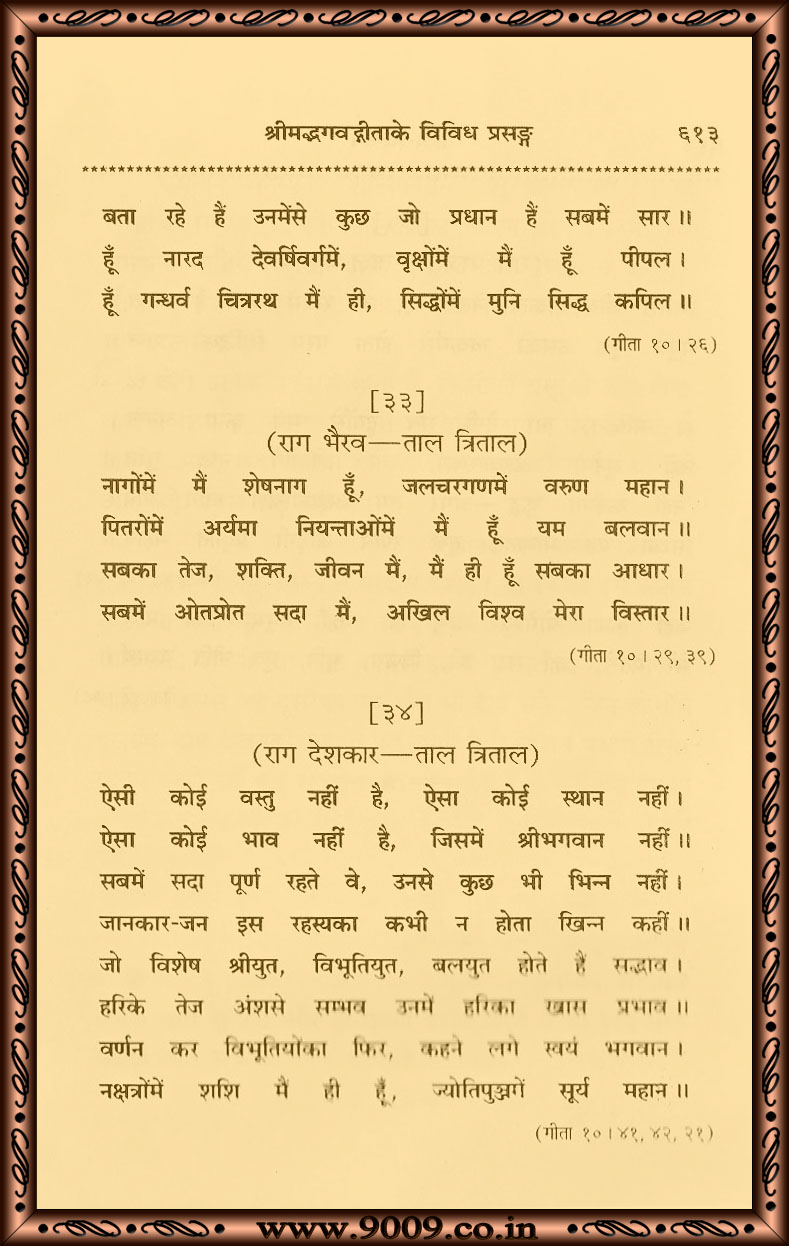 श्रीमद्भगवद्गीताके विविध प्रसङ्ग ६१३
बता रहे हैं उनमेंसे कुछ जो प्रधान हैं सबमें सार॥
हूँ नारद देवर्षिवर्गमें, वृक्षोंमें मैं हूँ पीपल।
हूँ गन्धर्व चित्ररथ मैं ही, सिद्धोंमें मुनि सिद्ध कपिल॥
(गीता १०।२६)
[३३]
(राग भैरव—ताल त्रिताल)
नागोंमें मैं शेषनाग हूँ, जलचरगणमें वरुण महान।
पितरोंमें अर्यमा नियन्ताओंमें मैं हूँ यम बलवान॥
सबका तेज, शक्ति, जीवन मैं, मैं ही हूँ सबका आधार।
सबमें ओतप्रोत सदा मैं, अखिल विश्व मेरा विस्तार॥
(गीता १०।२९, ३९)
[३४]
(राग देशकार—ताल त्रिताल)
ऐसी कोई वस्तु नहीं है, ऐसा कोई स्थान नहीं।
ऐसा कोई भाव नहीं है, जिसमें श्रीभगवान नहीं॥
सबमें सदा पूर्ण रहते वे, उनसे कुछ भी भिन्न नहीं।
जानकार-जन इस रहस्यका कभी न होता खिन्न कहीं॥
जो विशेष श्रीयुत, विभूतियुत, बलयुत होते हैं सद्भाव।
हरिके तेज अंशसे सम्भव उनमें हरिका खास प्रभाव॥
वर्णन कर विभूतियोंका फिर, कहने लगे स्वयं भगवान।
नक्षत्रोंमें शशि मैं ही हूँ, ज्योतिपुञ्जगें सूर्य महान॥
(गीता १०।४१, ४२, २१)
www.9009.co.in